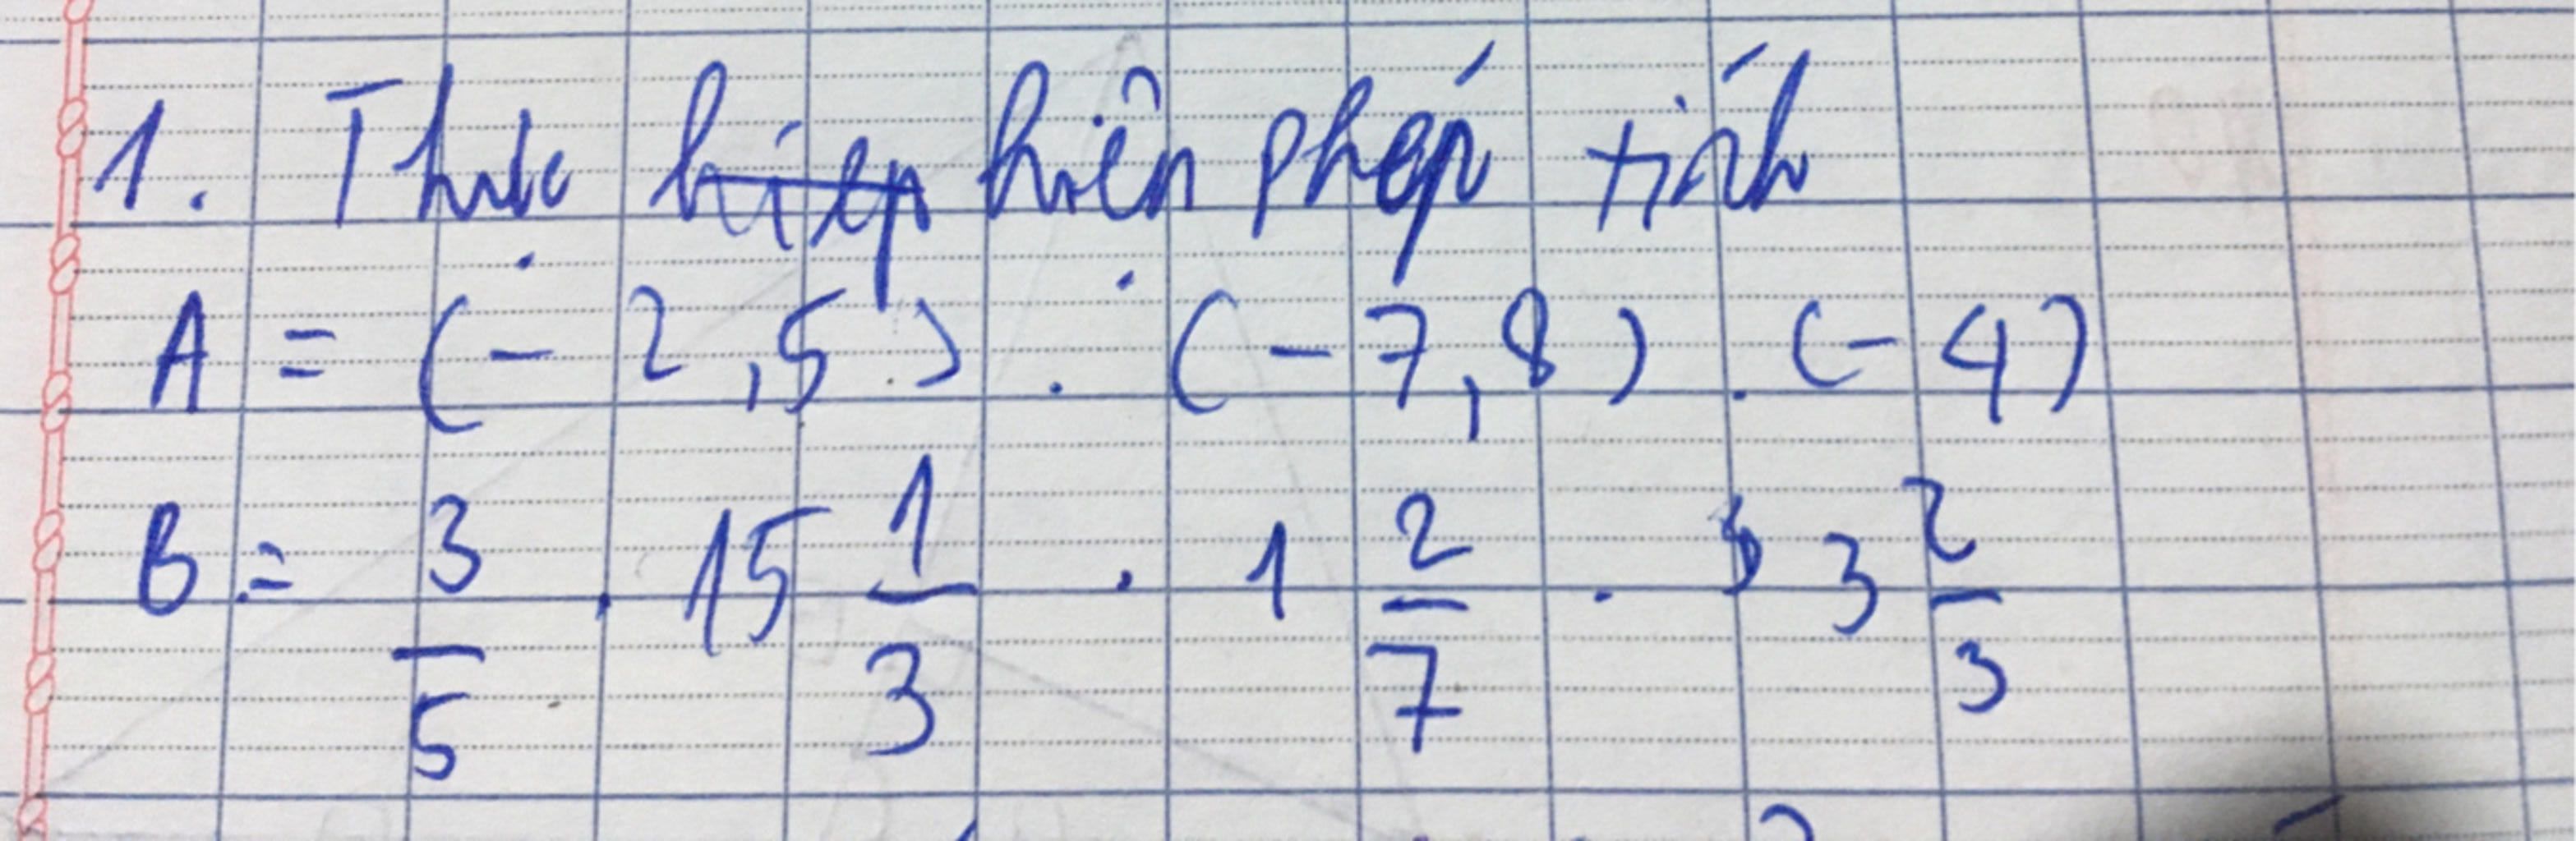 1. Thực hiện phép tính
A = (- 2,5) . (- 7,8) . (- 4)
B = 3/5 . 15 1/3 . 1 2/7 . 3 2/3